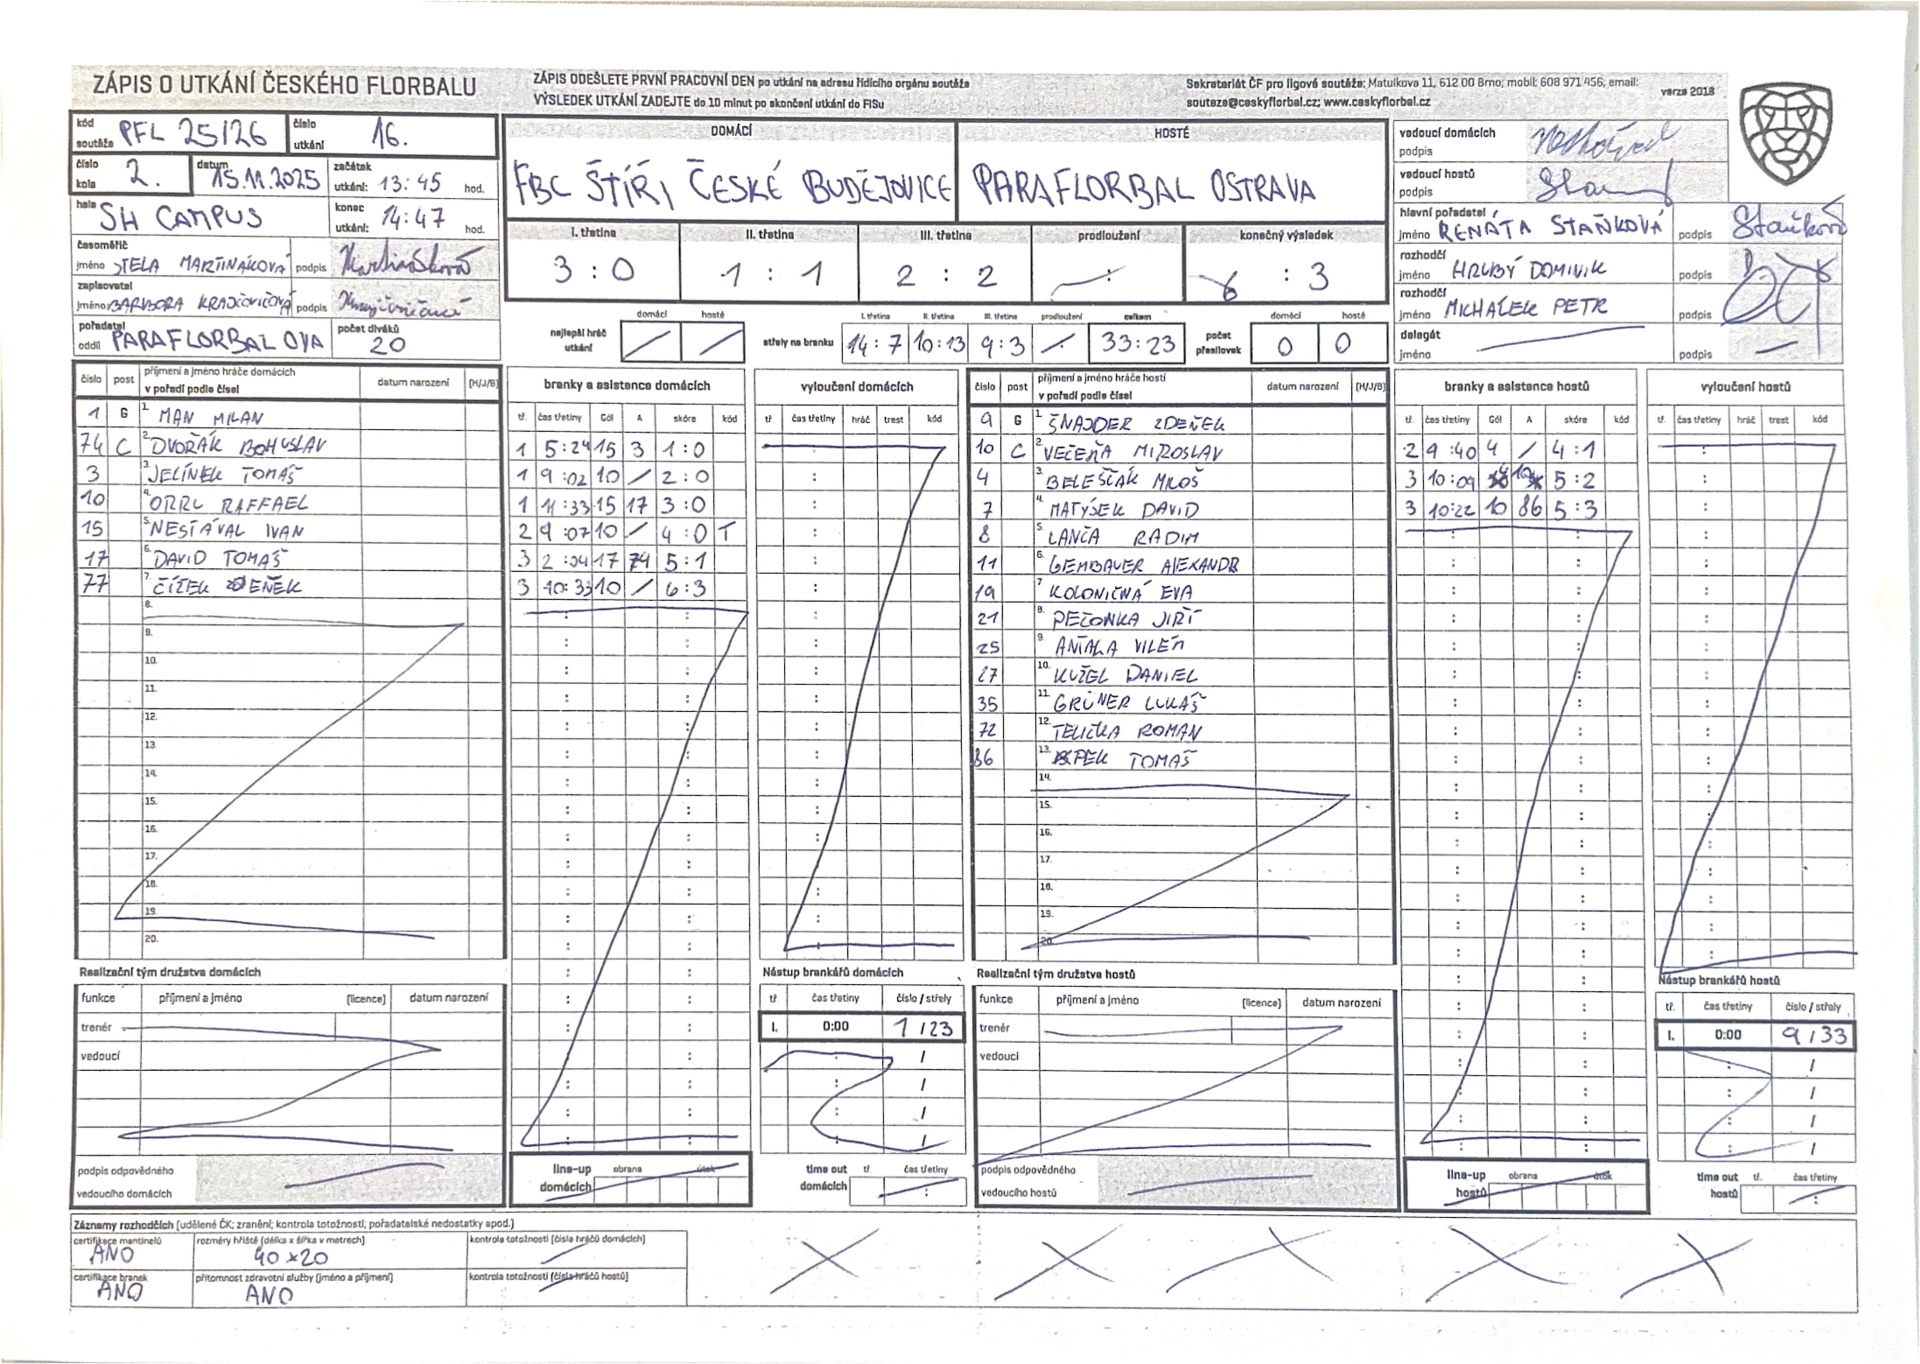 ZÁPIS O UTKÁNÍ ČESKÉHO FLORBALU
ZÁPIS ODEŠLETE PRVNÍ PRACOVNÍ DEN po utkání na adresu řídícího orgánu soutěže
VÝSLEDEK UTKÁNÍ ZADEJTE do 10 minut po skončení utkání do FISu
Sekretariát ČF pro ligové soutěže; Matulkova 11, 612 00 Brno; mobil: 608 971 456; email:
souteze@ceskyflorbal.cz; www.ceskyflorbal.cz
verze 2018
kód soutěže PFL 25/26 číslo utkání 16.
číslo kola 2. datum 15.11.2025 začátek utkání: 13:45 hod.
hala SH CAMPUS konec utkání: 14:47 hod.
časoměřič jméno STELA MARTINÁKOVÁ podpis
zapisovatel jméno BARBORA podpis
pořadatel oddíl PARAFLORBAL OVA počet diváků 20
DOMÁCÍ HOSTÉ
FBC ŠTÍŘI ČESKÉ BUDĚJOVICE PARAFLORBAL OSTRAVA
I. třetina II. třetina III. třetina prodloužení konečný výsledek
3 : 0 1 : 1 2 : 2 : 6 : 3
nejlepší hráč utkání domácí hosté
střely na branku I. třetina II. třetina III. třetina prodloužení celkem
14:7 10:13 9:3 33:23
počet přesilovek domácí hosté
0 0
vedoucí domácích podpis
vedoucí hostů podpis
hlavní pořadatel jméno RENÁTA STAŇKOVÁ podpis Staňková
rozhodčí jméno HRUBÝ DOMINIK podpis
rozhodčí jméno MICHÁLEK PETR podpis
delegát jméno podpis
číslo post příjmení a jméno hráče domácích v pořadí podle čísel datum narození (H/J/B)
1 G 1. MAN MILAN
74 C 2. DVOŘÁK BOHUSLAV
3 3. JELÍNEK TOMÁŠ
10 4. ORRU RAFFAEL
15 5. NESTÁVAL IVAN
17 6. DAVID TOMÁŠ
77 7. ČÍŽEK ZDENĚK
8.
9.
10.
11.
12.
13.
14.
15.
16.
17.
18.
19.
20.
branky a asistence domácích
tř. čas třetiny Gól A skóre kód
1 5:24 15 3 1:0
1 9:02 10 / 2:0
1 11:33 15 17 3:0
2 9:07 10 / 4:0 T
3 2:04 17 74 5:1
3 10:33 10 / 6:3
vyloučení domácích
tř čas třetiny hráč trest kód
číslo post příjmení a jméno hráče hostí v pořadí podle čísel datum narození (H/J/B)
9 G 1. ŠNAJDER ZDENĚK
10 C 2. VEČEŘA MIROSLAV
4 3. BELEŠČÁK MILOŠ
7 4. MATÝSEK DAVID
8 5. LANČA RADIM
11 6. GEMBAUER ALEXANDR
19 7. KOLONIČNÁ EVA
21 8. PEČONKA JIŘÍ
25 9. VILÉM
27 10. KUŽEL DANIEL
35 11. GRÜNER LUKÁŠ
72 12. TELIČKA ROMAN
86 13. TOMÁŠ
14.
15.
16.
17.
18.
19.
20.
branky a asistence hostů
tř. čas třetiny Gól A skóre kód
2 9:40 4 / 4:1
3 10:09 5:2
3 10:22 10 86 5:3
vyloučení hostů
tř. čas třetiny hráč trest kód
Realizační tým družstva domácích
funkce příjmení a jméno (licence) datum narození
trenér
vedoucí
podpis odpovědného vedoucího domácích
line-up domácích obrana útok
Nástup brankářů domácích
tř čas třetiny číslo / střely
I. 0:00 1 / 23
time out domácích tř. čas třetiny
Realizační tým družstva hostů
funkce příjmení a jméno (licence) datum narození
trenér
vedoucí
podpis odpovědného vedoucího hostů
line-up hostů obrana útok
Nástup brankářů hostů
tř. čas třetiny číslo / střely
I. 0:00 9 / 33
time out hostů tř. čas třetiny
Záznamy rozhodčích (udělené ČK; zranění; kontrola totožnosti; pořadatelské nedostatky apod.)
certifikace mantinelů ANO rozměry hřiště (délka x šířka v metrech) 40 x 20 kontrola totožnosti (čísla hráčů domácích)
certifikace branek ANO přítomnost zdravotní služby (jméno a příjmení) ANO kontrola totožnosti (čísla hráčů hostů)